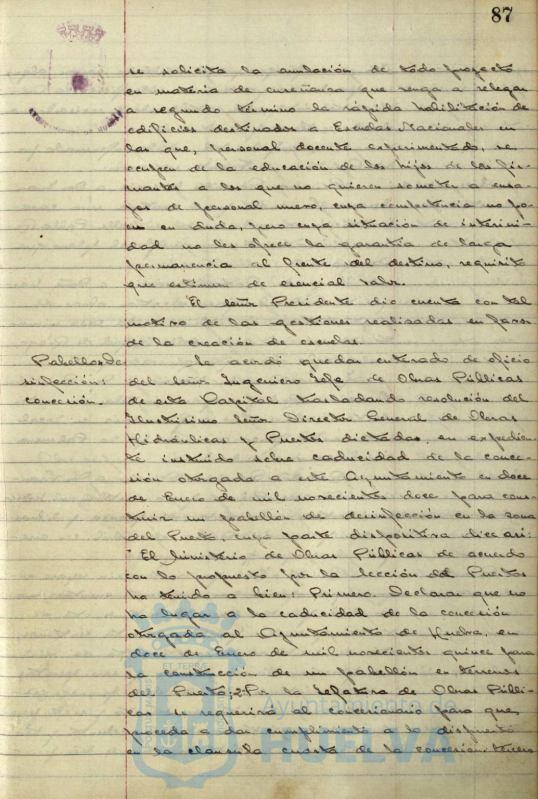 87
se solicita la anulación de todo proyecto
en materia de enseñanza que venga a relegar
a segundo término la rápida habilitación de
edificios destinados a Escuelas Nacionales en
las que, personal docente experimentado, se
ocupen de la educación de los hijos de los fir-
mantes a los que no quieren someter a ensa-
yos de personal nuevo, cuya competencia no po-
nen en duda, pero cuya situación de interini-
dad no les ofrece la garantía de larga
permanencia al frente del destino, requisito
que estiman de esencial valor.
El señor Presidente dio cuenta con tal
motivo de las gestiones realizadas en favor
de la creación de escuelas.
Pabellón De
sinfección:
concesión.
Se acordó quedar enterado de oficio
del Señor Ingeniero Jefe de Obras Públicas
de esta Capital trasladando resolución del
Ilustrísimo Señor Director General de Obras
Hidráulicas y Puertos dictada, en expedien-
te instruido sobre caducidad de la conce-
sión otorgada a este Ayuntamiento en doce
de Enero de mil novecientos doce para cons-
truir un pabellón de desinfección en la zona
del Puerto, cuya parte dispositiva dice así:
"El Ministerio de Obras Públicas de acuerdo
con lo propuesto por la Sección de Puertos
ha tenido a bien: Primero. Declarar que no
ha lugar a la caducidad de la concesión
otorgada al Ayuntamiento de Huelva, en
doce de Enero de mil novecientos quince para
la construcción de un pabellón en terrenos
del Puerto; 2º Por la Jefatura de Obras Públi-
cas se requerirá al concesionario para que,
proceda a dar cumplimiento a lo dispuesto
en la clausula cuarta de la concesión. tercero
Ayuntamiento de
HUELVA